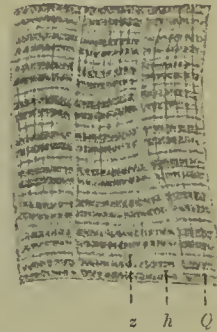 z h Q